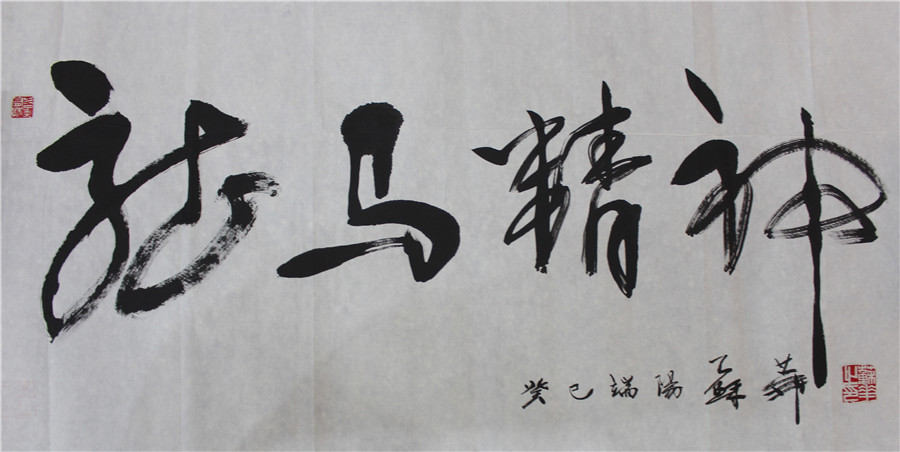 龙马精神
癸巳端陽 蘇華